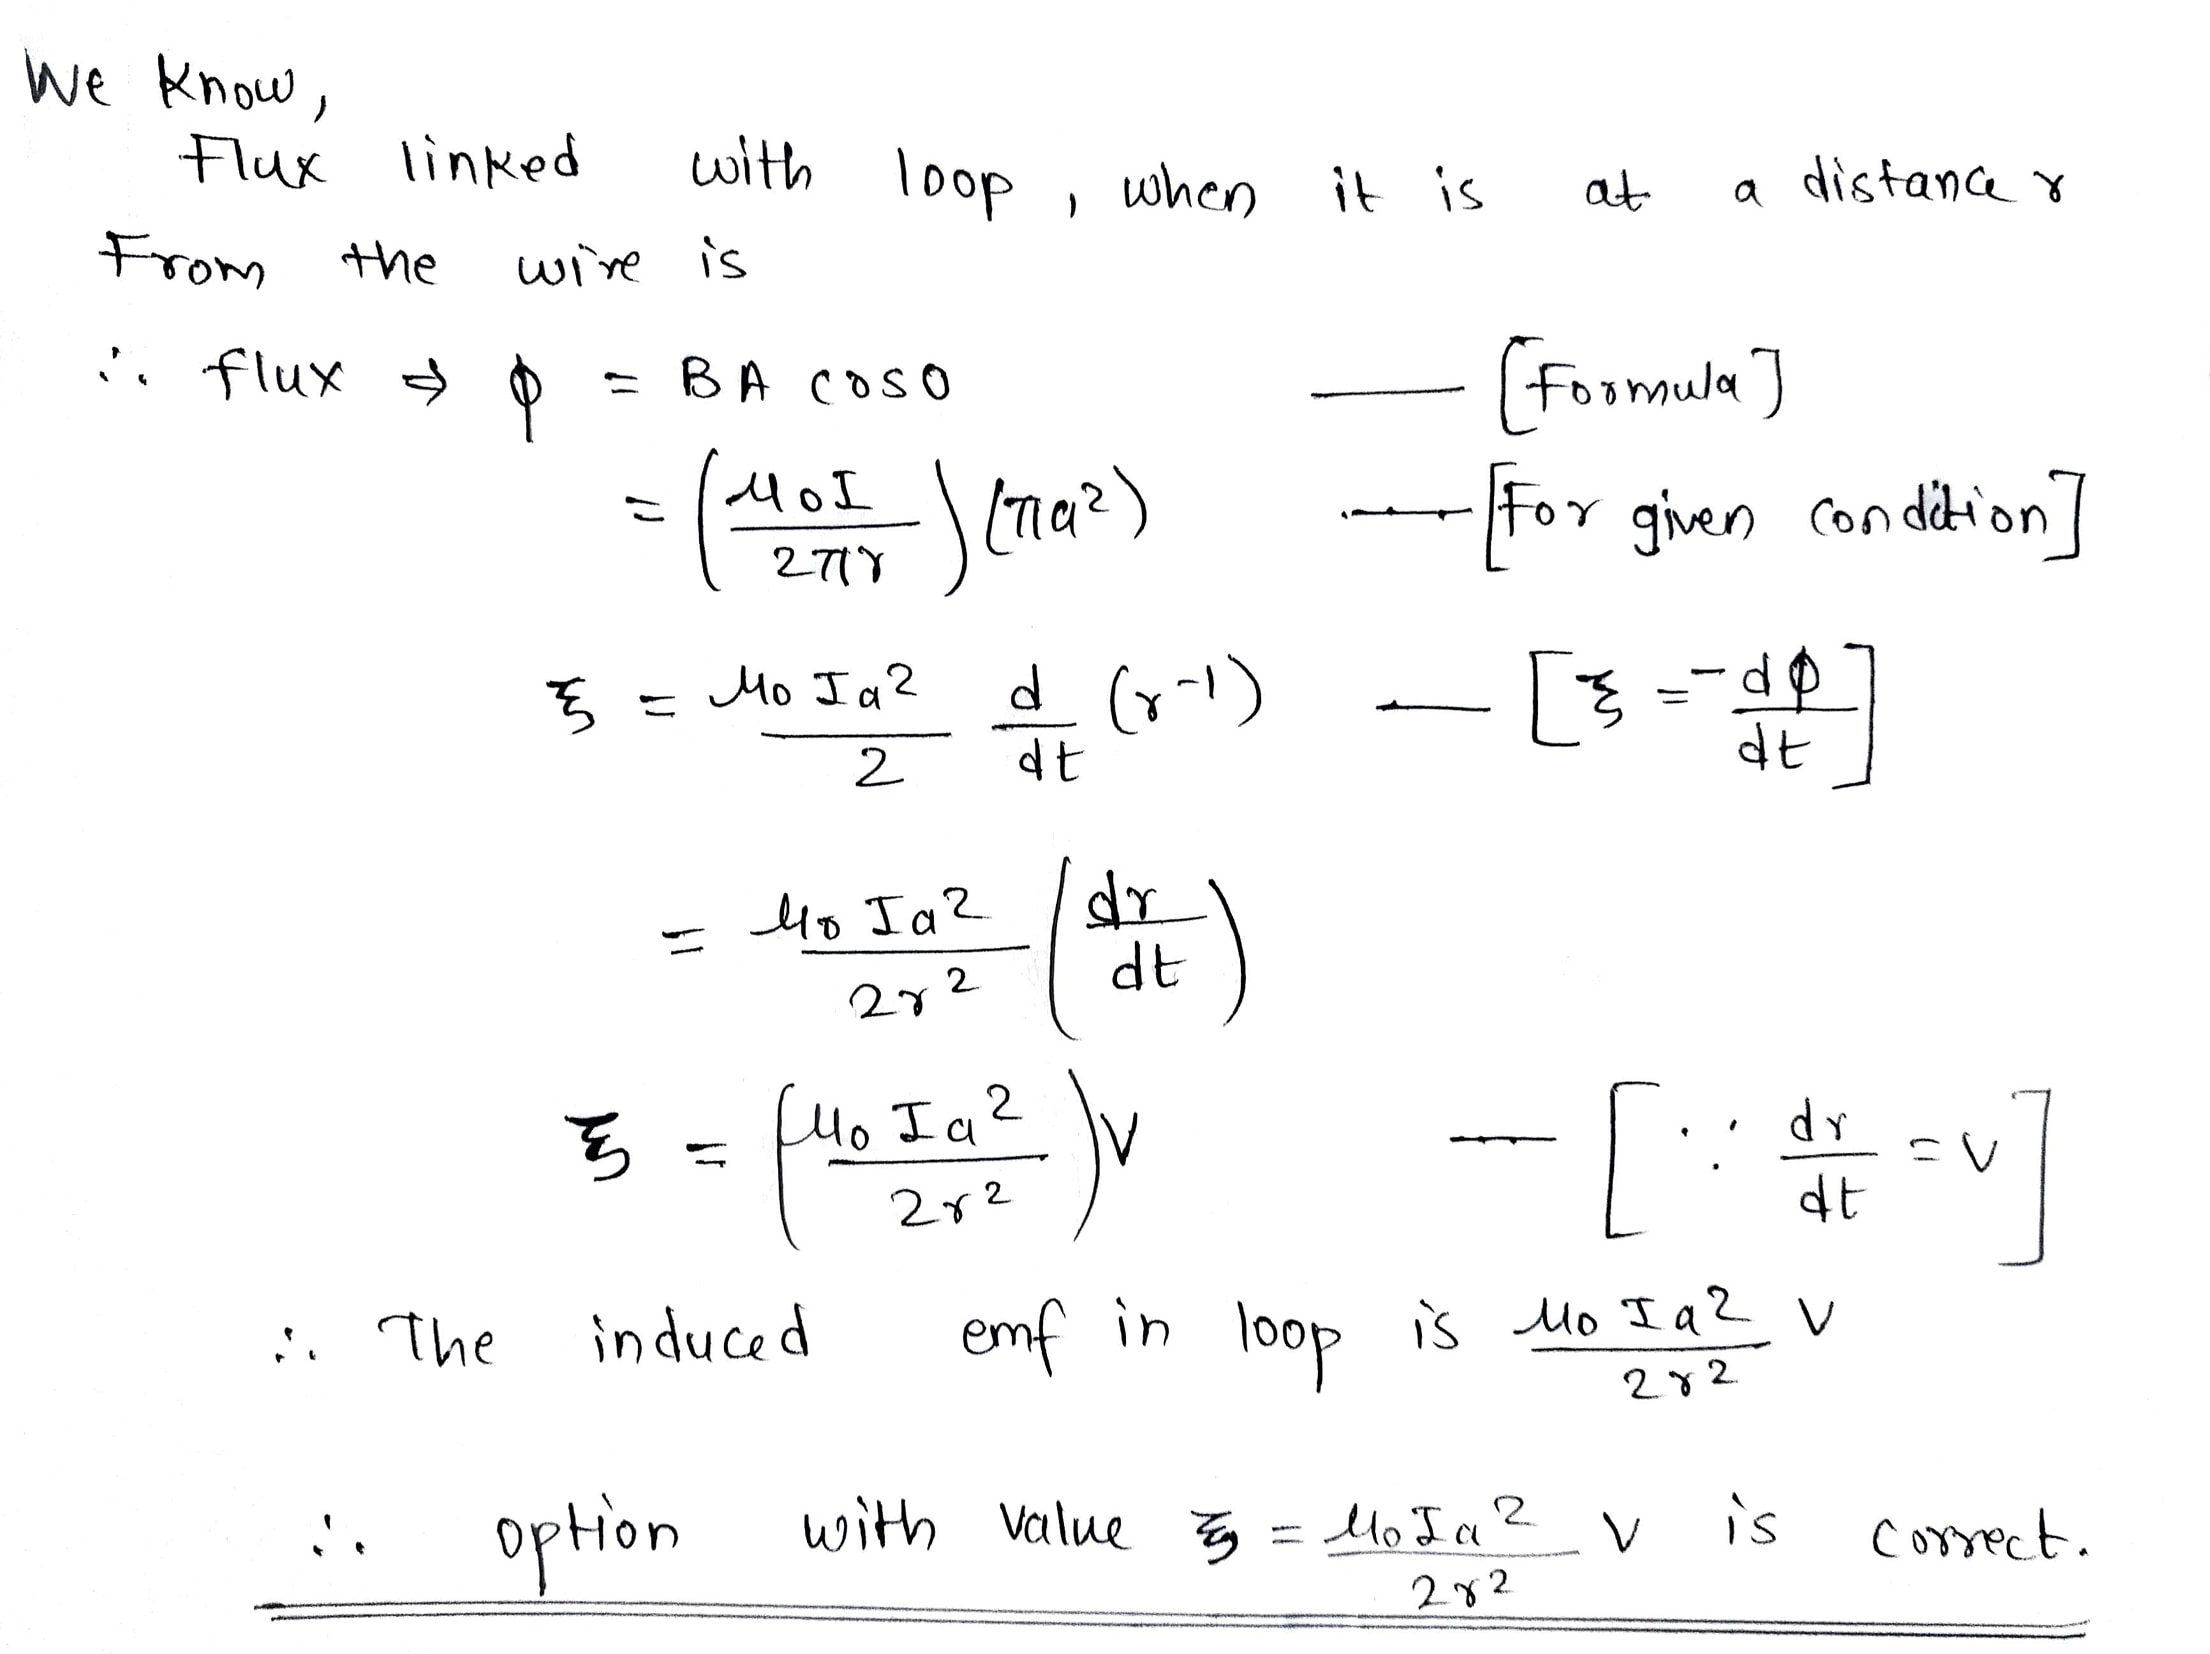 We Know,
Flux linked with loop, when it is at a distance r
From the wire is
∴ flux ⇒ ϕ = BA cos0 — [Formula]
= (μ0I / 2πr) (πa²) — [For given condition]
ξ = μ0Ia² / 2 d/dt (r⁻¹) — [ξ = -dϕ/dt]
= μ0Ia² / 2r² (dr/dt)
ξ = (μ0Ia² / 2r²)V — [∵ dr/dt = V]
∴ The induced emf in loop is μ0Ia² / 2r² V
∴ option with value ξ = μ0Ia² / 2r² V is correct.